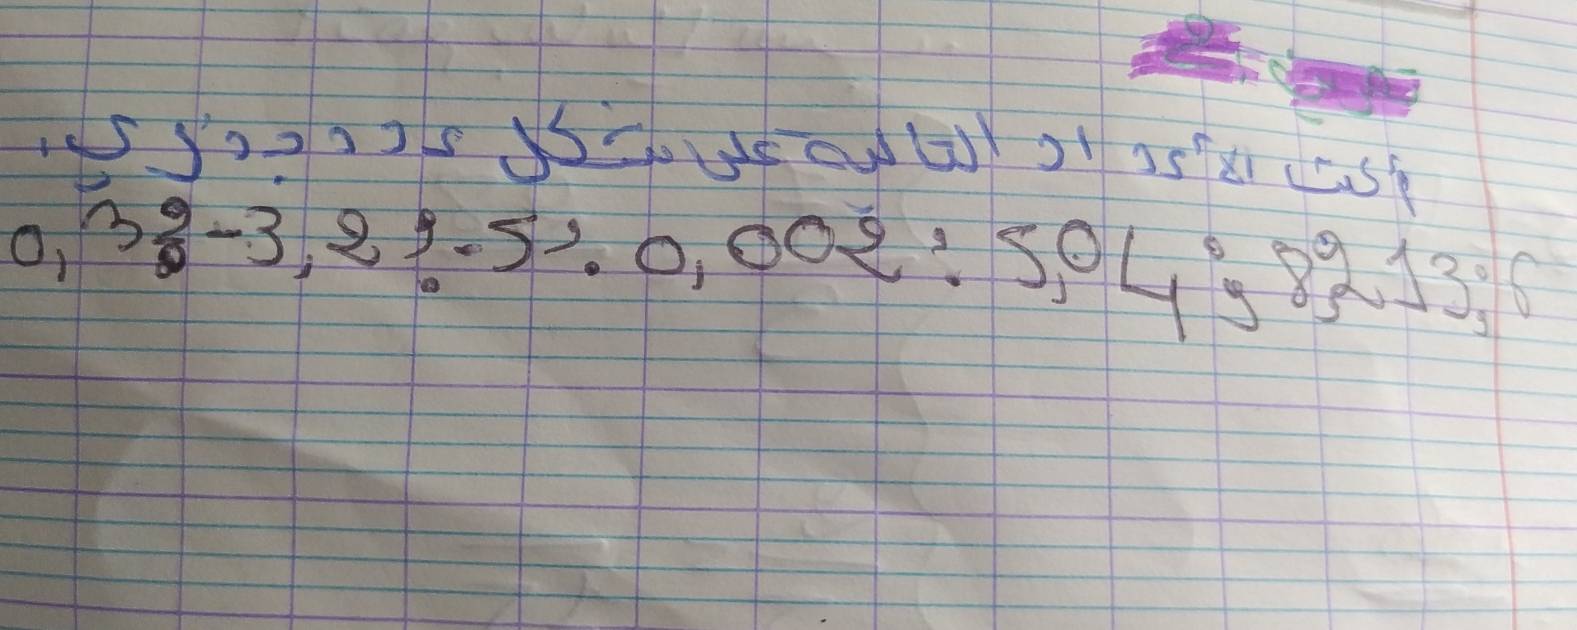 تمرين 2
اكتب الأعداد التالية على شكل عدد جذري
0,3 ; -3,2 ; -5 ; 0,002 ; 5,04 ; 8,213 ; 6